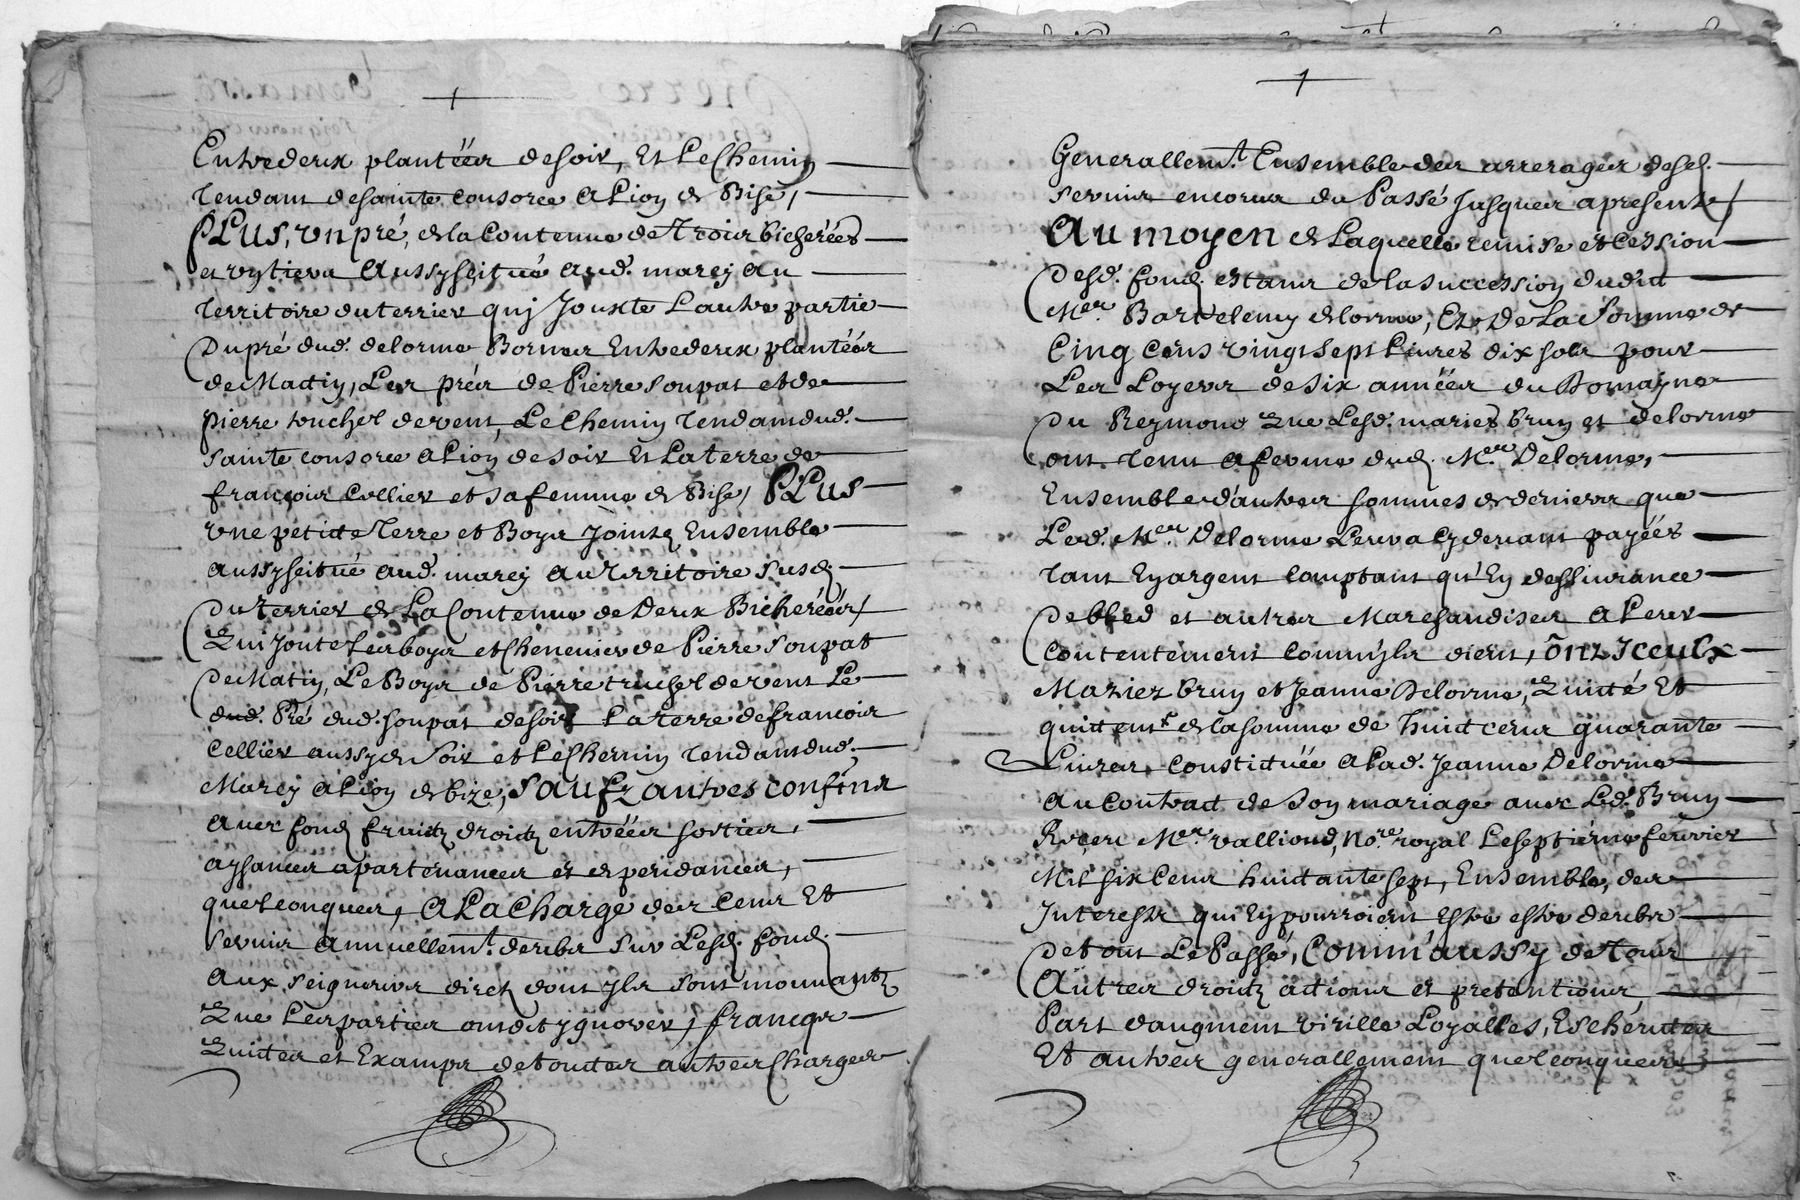 Entredeux plantéés de soir, Et Le Chemin
tendant de sainte Consorce A Lion de Bise,
PLUS, un pré, de la Contenue de Trois bicherées
et aussy scitué aud. marcy au
territoire du terrier quj Jouxte L'autre partie
Du pré dud. delorme Bornes Entredeux plantéés
de Matin, Les prés de Pierre Soupat et de
pierre truchet de vent, Le Chemin tendant dud.
sainte consorce A Lion de soir Et La terre de
françois Cellier et sa femme de Bise, PLUS
une petitte Terre et Boys Joints Ensemble
aussy scitué aud. marcy au Territoire susd.
Du Terrier de La Contenue de Deux Bicheréés,
Qui Joute Les boys et Chenevier de Pierre Soupat
De Matin, Le Boys de Pierre truchet de vent Le
dud. Pré dud. soupat de soir La terre de francois
Cellier aussy de Soir et Le Chemin tendant dud.
Marcy A Lion de bize, SAUFZ autres confins
avec fond fruitz droitz entréés sorties,
aysances apartenances et despendances,
quelconques, A LA CHARGE des Cens Et
servis annuellemt. deubs sur Lesd. fond.
aux seigneurs directz dont Ils sont mouvantz
Que Les parties ont dit ygnorer, francqs
Quites et Exampts de touttes autres Charges
Generallemt. Ensemble des arrerages desd.
servis encorus du Passé Jusques a present,
AU MOYEN de Laquelle remise et Cession
Desd. fond. estans de la succession dudit
Mer. Bartelemy delorme, Et De La Somme de
Cinq cens vingt sept Livres dix sols pour
Les Loyers de six annéés du Domayne
Du Reymond Que Lesd. mariés bruy et delorme
ont tenu a ferme dud. Mere Delorme,
Ensemble d'autres sommes de deniers que
Led. Mer. Delorme Leur a cy devant payéés
tant En argent Comptant qu'En deslivrance
De bled et autres Marchandises A Leur
Contentement Comm'ils dient, ont Iceulx
Mariez bruy et Jeanne Delorme, Quitté Et
quittent de la somme de huict cens quarante
Livres Constituée A Lad. Jeanne Delorme
au Contrat de son mariage avec Led. Bruy
Receu Mer. vallioud, Nore. royal Le septieme fevrier
Mil six Cens huictante sept, Ensemble, des
Interests qui En pourroient Estre deubs
De tout Le Passé, Comm'aussy de Tous
Autres droitz actions et pretentions,
Part d'augment virille Loyalles, Escheutes
Et autres generallement quelconques